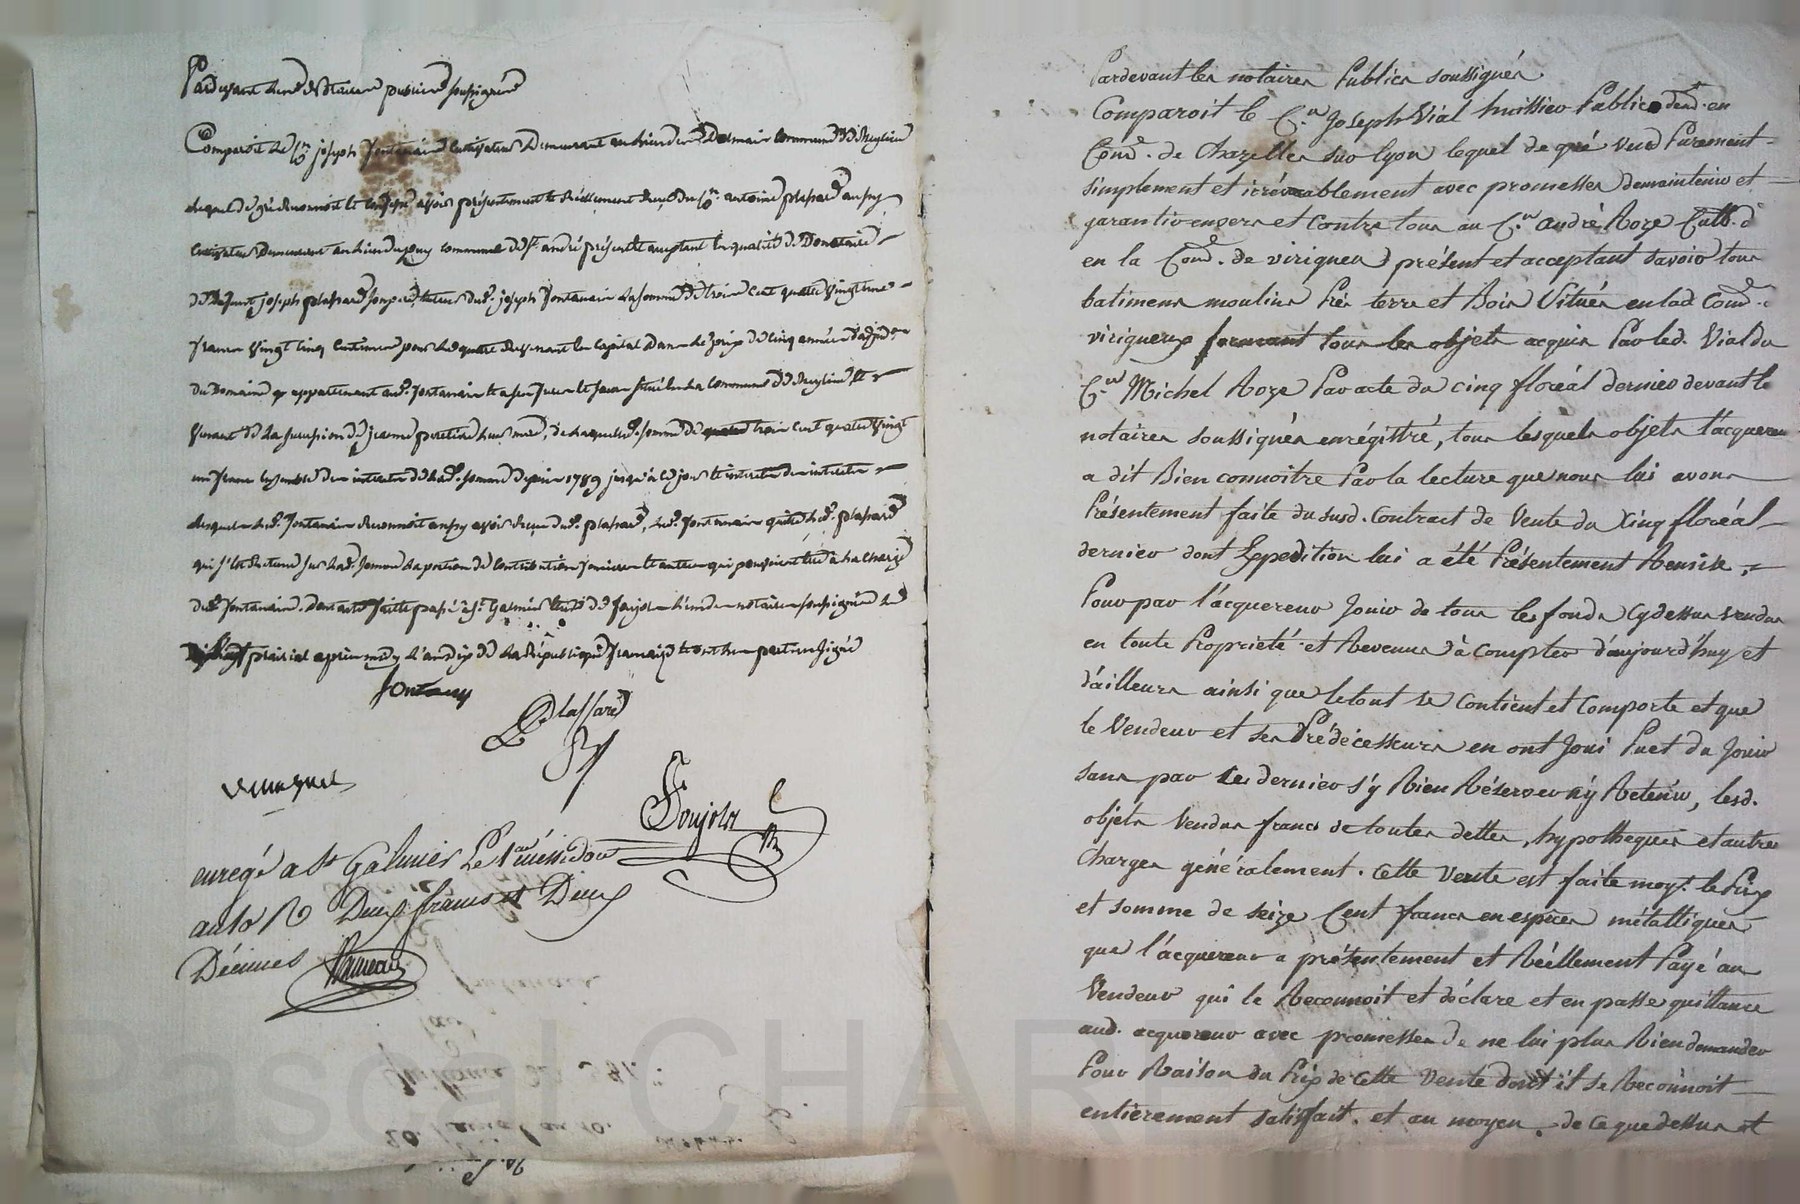 Pardevant les notaires publics soussignés
Comparoit le C.en joseph fontanair cultivateur demeurant au lieu de commune de
lequel de gré reconnoit et confesse avoir présentement et réellement reçu du C.en antoine plassard aussy
cultivateur demeurant au lieu du commune de St. andré présent et acceptant en qualité de Donataire
de deffunt joseph plassard son père, tuteur dud. joseph fontanair la somme de trois cent quatre vingt un
francs vingt cinq centimes pour le quatre revenant le capital dans le prix de cinq années d'afferme
du Domaine appartenant aud. fontanair et a ses frères et sœurs situé en la commune de et
venant de la succession de jeanne leur mère, de laquelle somme de trois cent quatre vingt
un francs ensemble des interets de lad. somme depuis 1789 jusqu'à ce jour et interets des interets
desquels led. fontanair reconnoit aussy avoir reçu dud. plassard, led. fontanair quitte led. plassard
qui s'est retenu sur lad. somme la portion de contribution foncière et autres qui pouvoient être à la charge
dud. fontanair. dont acte fait et passé à St. Galmier étude de foujols l'un des notaires soussignés le
prairial après midy l'an dix de la République française et ont les parties signé
fontany
Plassard
Foujols
enregé a St Galmier Le 1er messidor
an 10 R Deux francs et Deux
Décimes
Pardevant les notaires Publics soussignés
Comparoit le C.en Joseph Vial huissier Public dem.t en
Com.e de Chazelles sur lyon lequel de gré vend Purement
simplement et irrévocablement avec promesses de maintenir et
garantir envers et contre tous au C.en andré Roze Cult.r d.t
en la Com.e de virigneu présent et acceptant savoir tous
batimens moulins Prés terre et Bois Situés en lad Com.e
virigneux formant tous les objets acquis Par led. Vial du
C.en Michel Roze Par acte du cinq floréal dernier devant le
notaires soussignés enrégistré, tous lesquels objets l'acquereur
a dit Bien connoitre Par la lecture que nous lui avons
Présentement faite du susd. Contract de Vente du Cinq floréal
dernier dont L'expedition lui a été Présentement Remise,
Pour par l'acquereur Jouir de tous les fonds Cydessus vendus
en toute Propriété et Revenus à Compter d'aujourd'huy et
d'ailleurs ainsi que le tout se Contient et Comporte et que
le Vendeur et ses Prédécesseurs en ont Joui Puet du Jouir
sans par ce dernier s'y Rien Réserver ny Retenir, lesd.
objets Vendus francs de toutes dettes, hypotheques et autres
Charges généralement. Cette Vente est faite moy.t le Prix
et somme de seize Cent francs en espèces métalliques
que l'acquereur a présentement et Réellement Payé au
Vendeur qui le Reconnoit et déclare et en passe quittance
aud. acquereur avec promesses de ne lui plus Rien demander
Pour Raison du Prix de Cette Vente dont il se Reconnoit
entièrement satisfait. et au moyen de ce que dessus et
Pascal CHAR